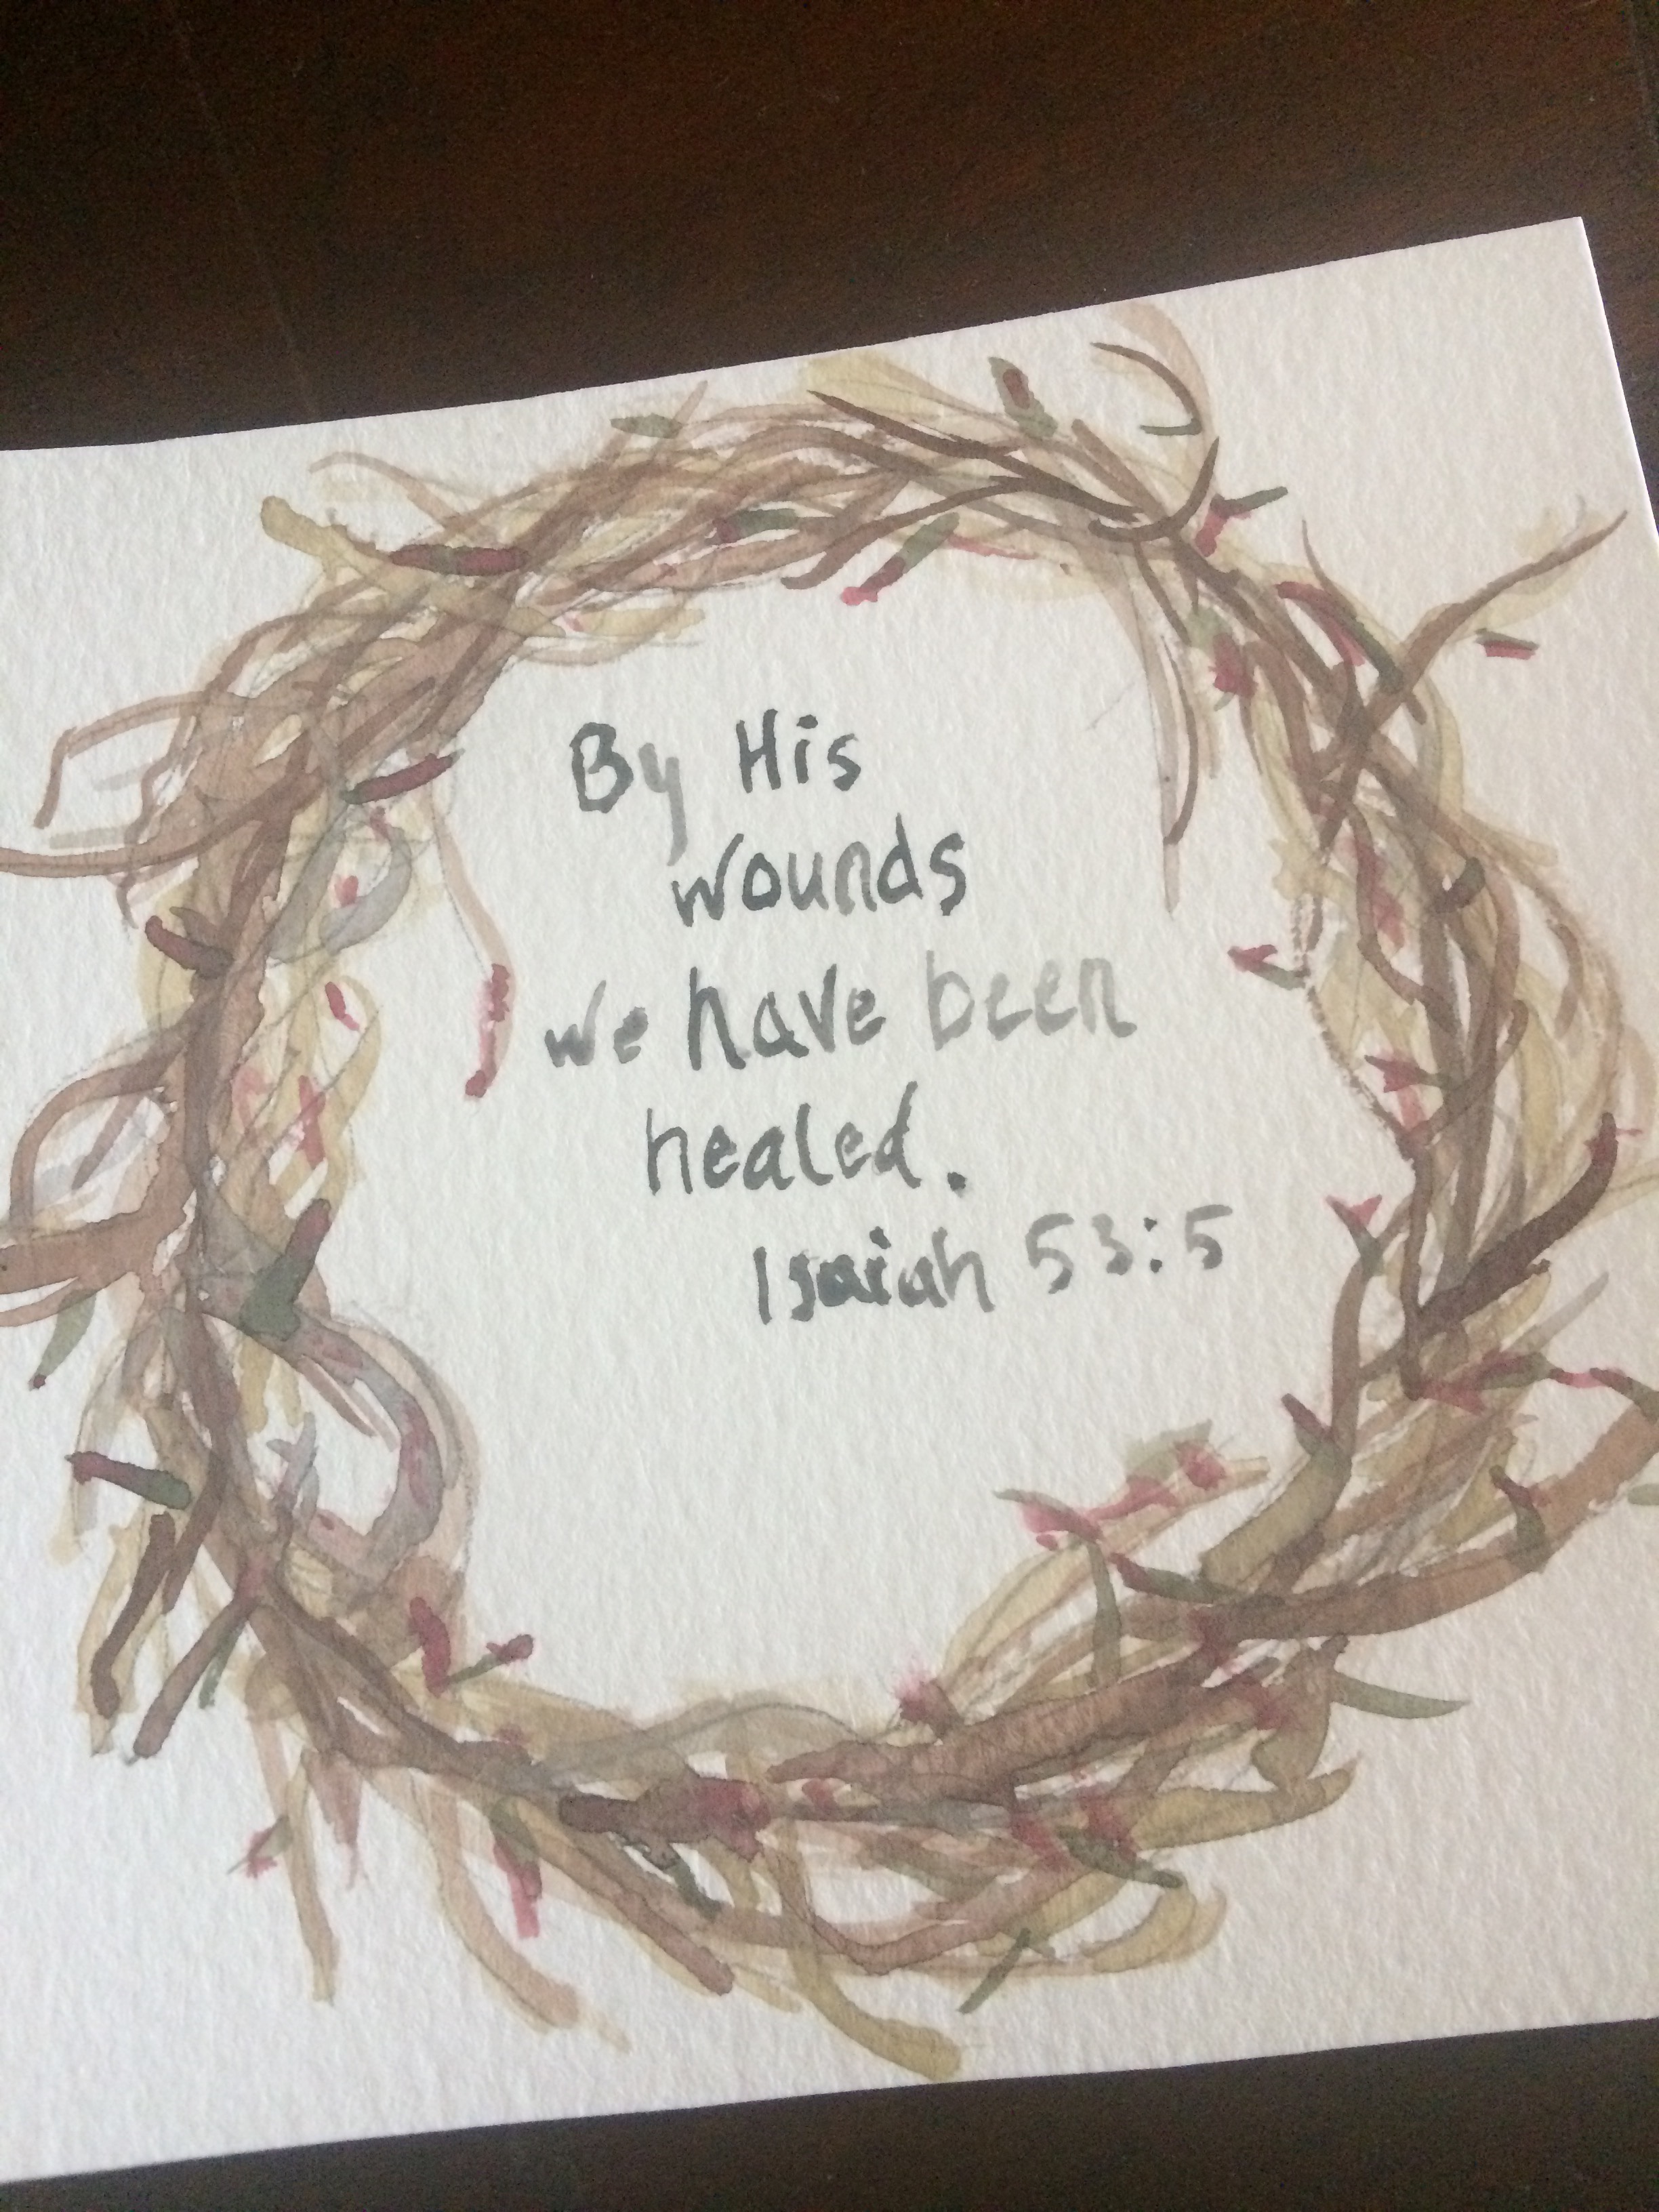 By His
wounds
we have been
healed.
Isaiah 53:5